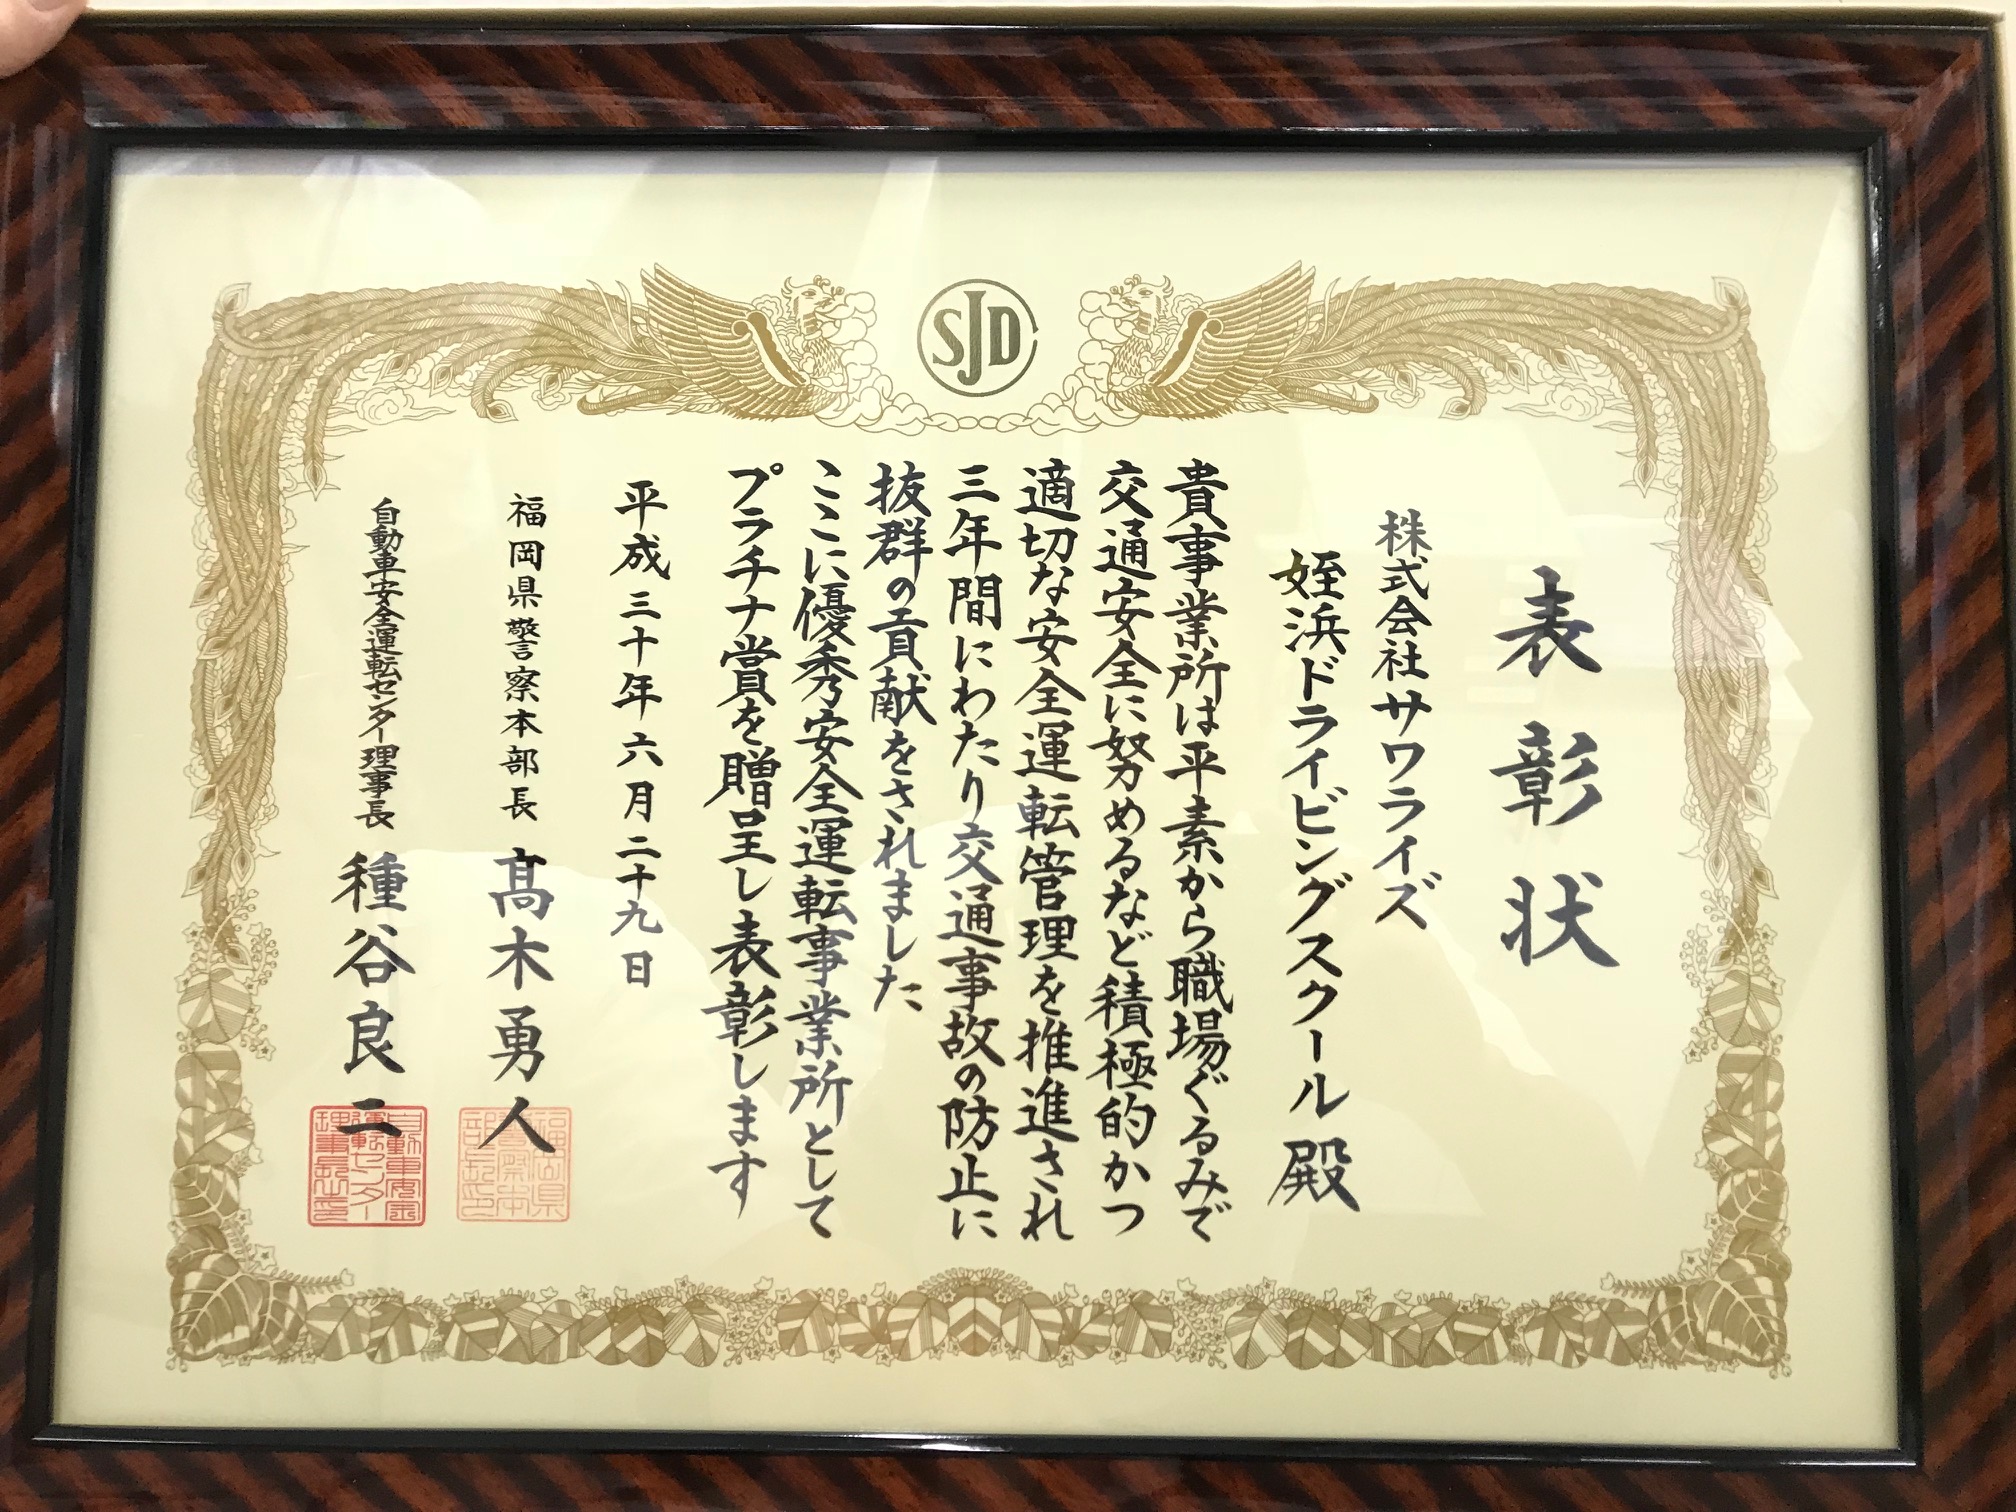 SJD
表彰状
株式会社サワライズ
姪浜ドライビングスクール殿
貴事業所は平素から職場ぐるみで
交通安全に努めるなど積極的かつ
適切な安全運転管理を推進され
三年間にわたり交通事故の防止に
抜群の貢献をされました
ここに優秀安全運転事業所として
プラチナ賞を贈呈し表彰します
平成三十年六月二十九日
福岡県警察本部長 髙木勇人
福岡県警察本部長印
自動車安全運転センター理事長 種谷良二
自動車安全運転センター理事長之印